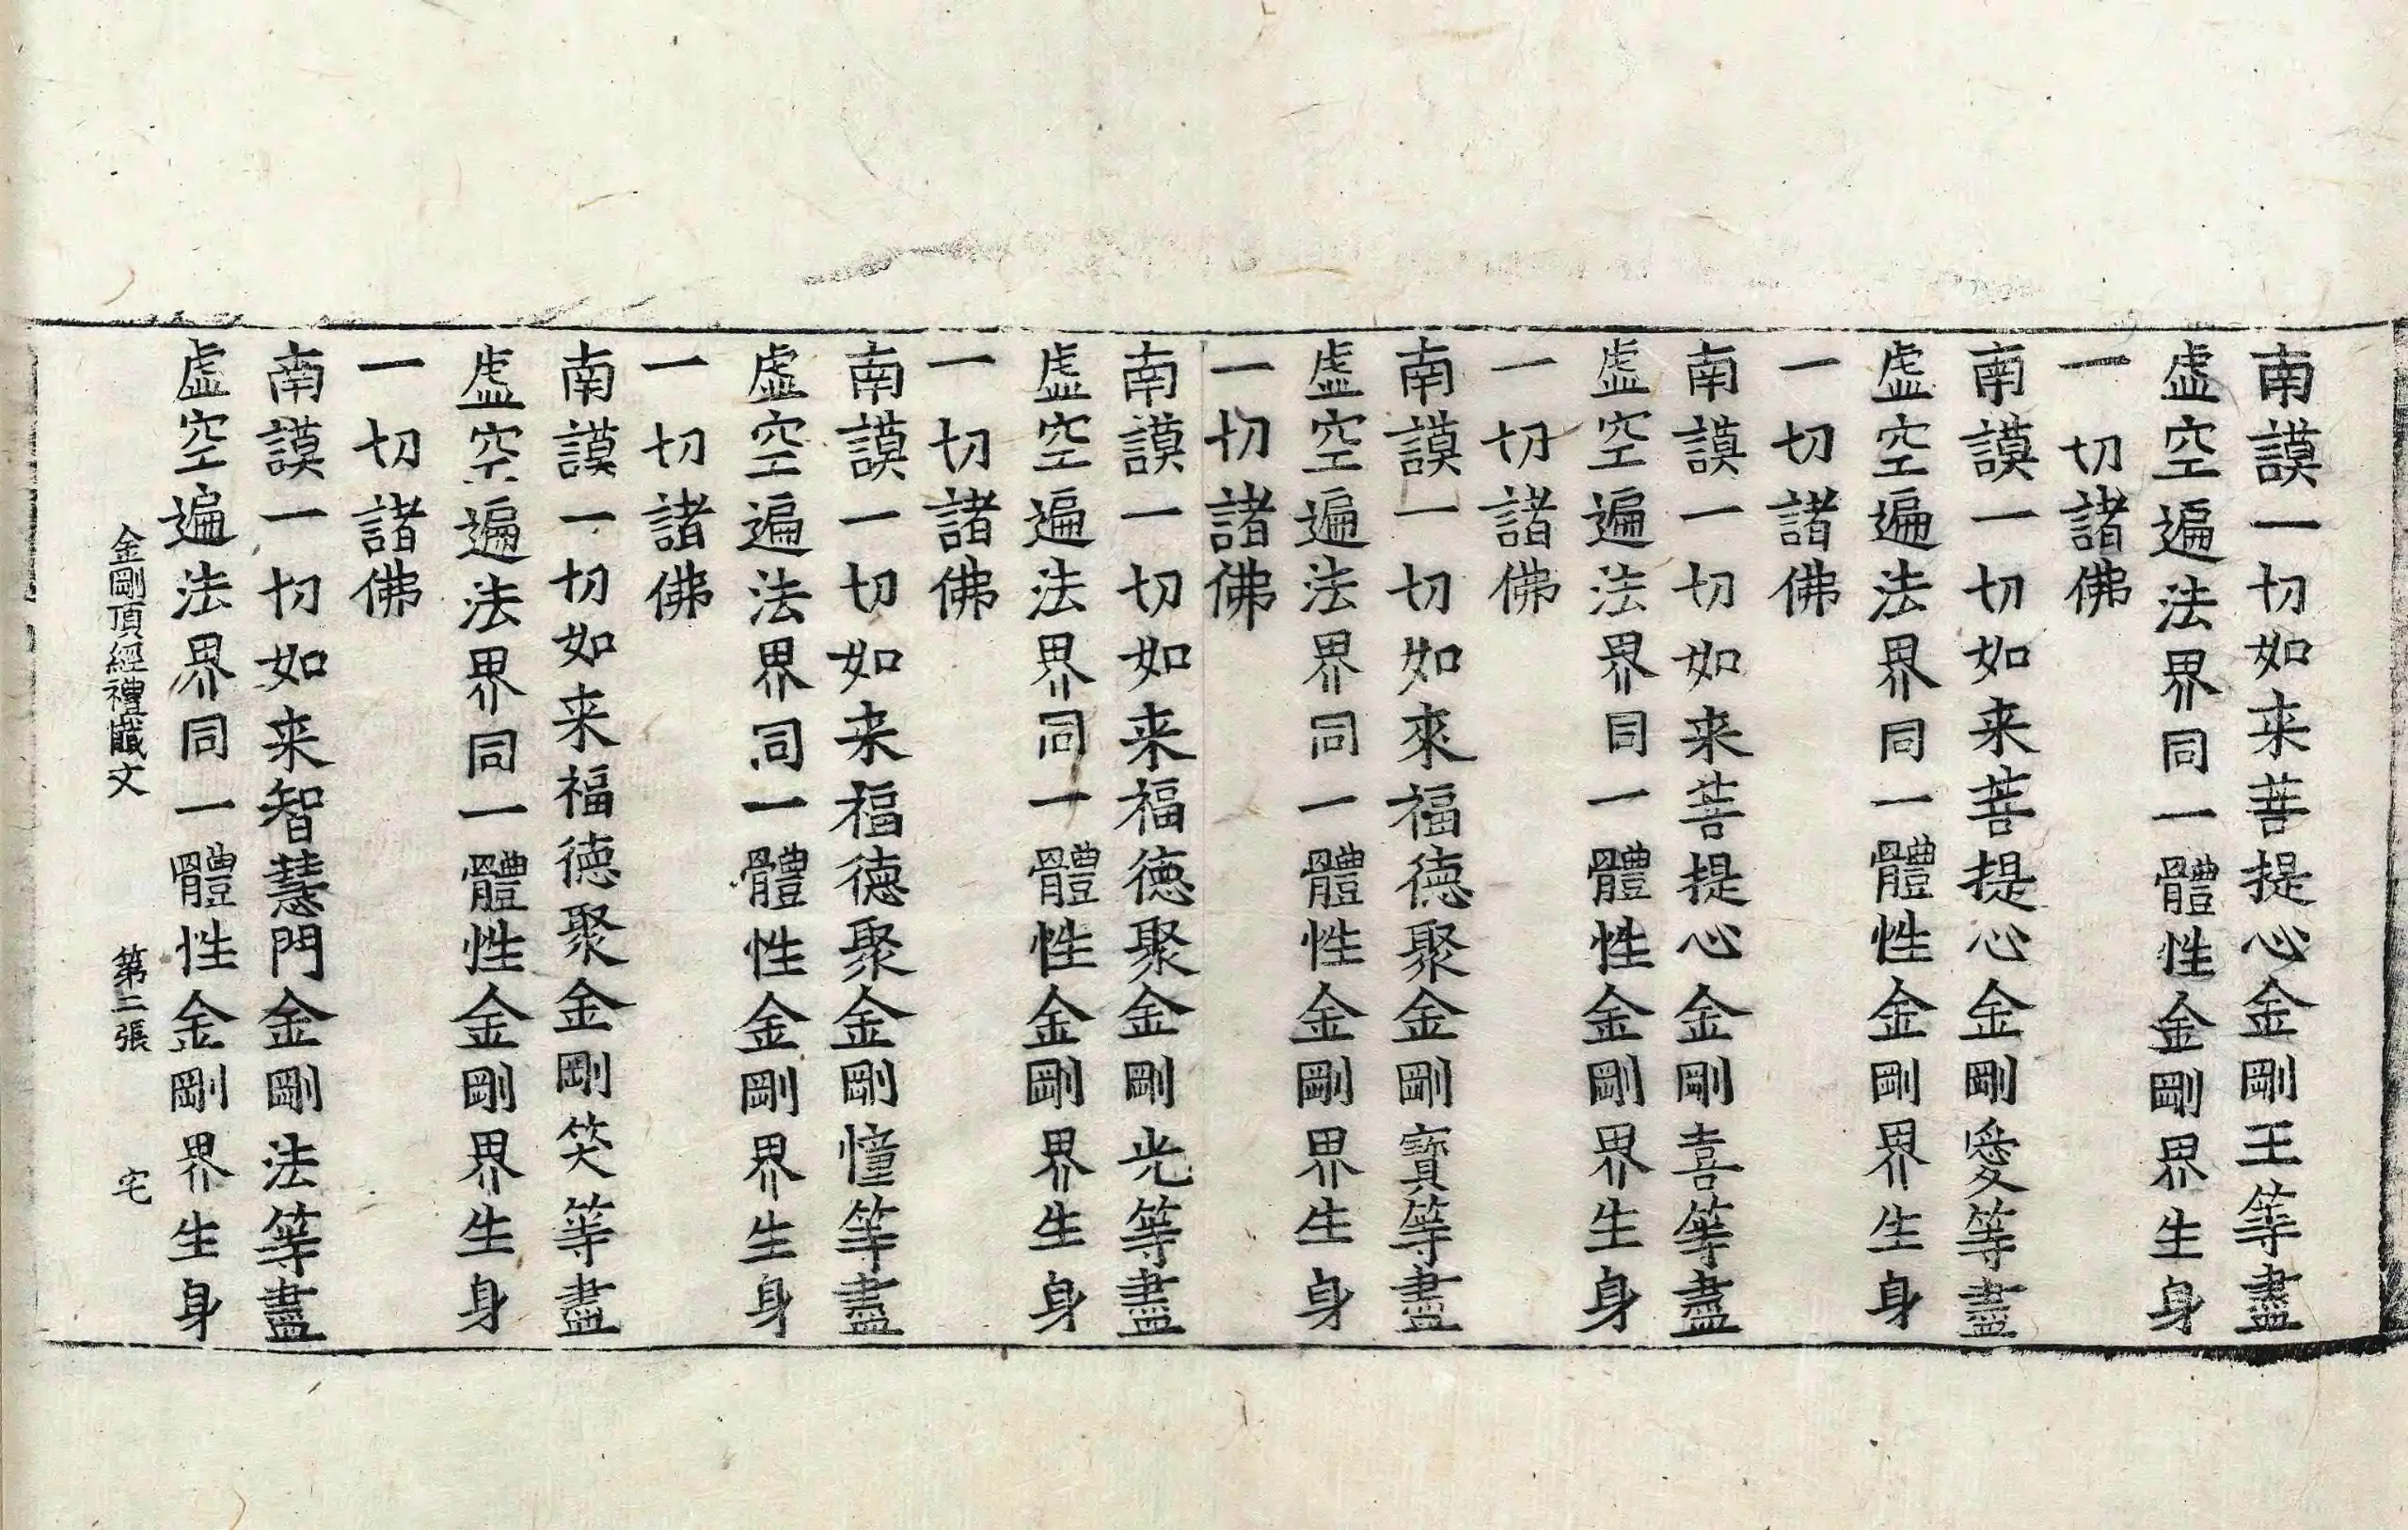 南謨一切如来菩提心金剛王等盡
虛空遍法界同一體性金剛界生身
一切諸佛
南謨一切如来菩提心金剛愛等盡
虛空遍法界同一體性金剛界生身
一切諸佛
南謨一切如来菩提心金剛喜等盡
虛空遍法界同一體性金剛界生身
一切諸佛
南謨一切如來福德聚金剛寶等盡
虛空遍法界同一體性金剛界生身
一切諸佛
南謨一切如来福德聚金剛光等盡
虛空遍法界同一體性金剛界生身
一切諸佛
南謨一切如来福德聚金剛憧等盡
虛空遍法界同一體性金剛界生身
一切諸佛
南謨一切如来福德聚金剛笑等盡
虛空遍法界同一體性金剛界生身
一切諸佛
南謨一切如来智慧門金剛法等盡
虛空遍法界同一體性金剛界生身
金剛頂經禮懺文 第二張 宅